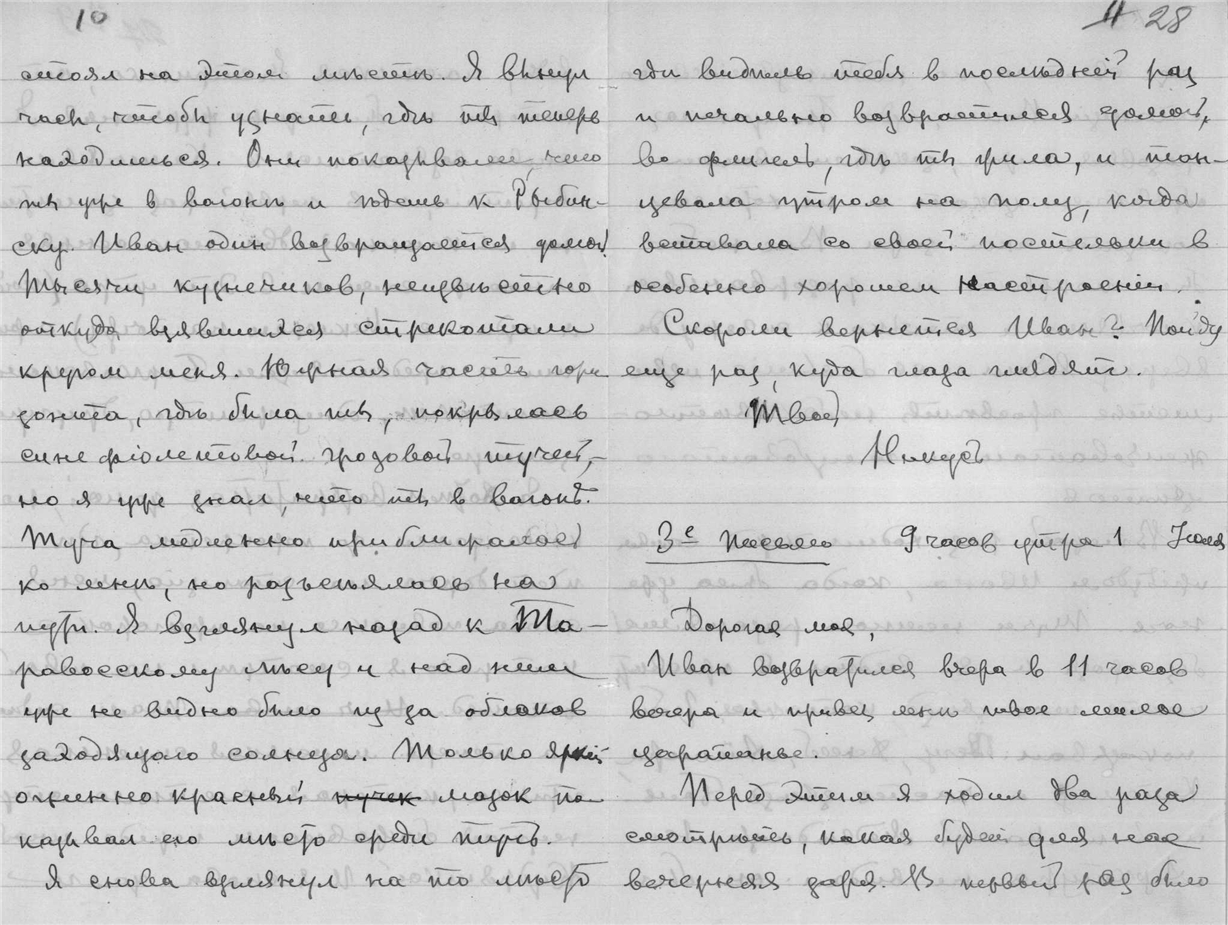 10
стоял на этом мѣстѣ. Я вынул
часы, чтобы узнать, гдѣ ты теперь
находишься. Они показывали, что
ты уже в вагонѣ и ѣдешь к Рыбин-
ску. Иван один возвращается домой.
Тысячи кузнечиков, неизвѣстно
откуда взявшихся стрекотали
кругом меня. Южная часть гори
зонта, гдѣ была ты, покрылась
сине фіолетовой грозовой тучей,–
но я уже знал, что ты в вагонѣ.
Туча медленно приближалась
ко мнѣ, но разъсѣялась на
пути. Я взглянул назад к Та–
равосскому лѣсу и над ним
уже не видно было из за облаков
заходящаго солнца. Только яркій
огненно красный пучек мазок по
казывал его мѣсто среди тучъ.
Я снова взглянул на то мѣсто
11 28
гдѣ видѣлъ тебя в послѣдній раз
и печально возвратился домой,
во флигель, гдѣ ты жила, и тан–
цевала утром на полу, когда
вставала со своей постельки в
особенно хорошем настроеніи.
Скороли вернется Иван? Пойду
еще раз, куда глаза глядят.
Твой
3е письмо 9 часов утра 1 Іюля
Дорогая моя,
Иван возвратился вчера в 11 часов
вечера и привез мнѣ твое милое
царапанье.
Перед этим я ходил два раза
смотрѣть, какая будет для нас
вечерняя заря. В первый раз было